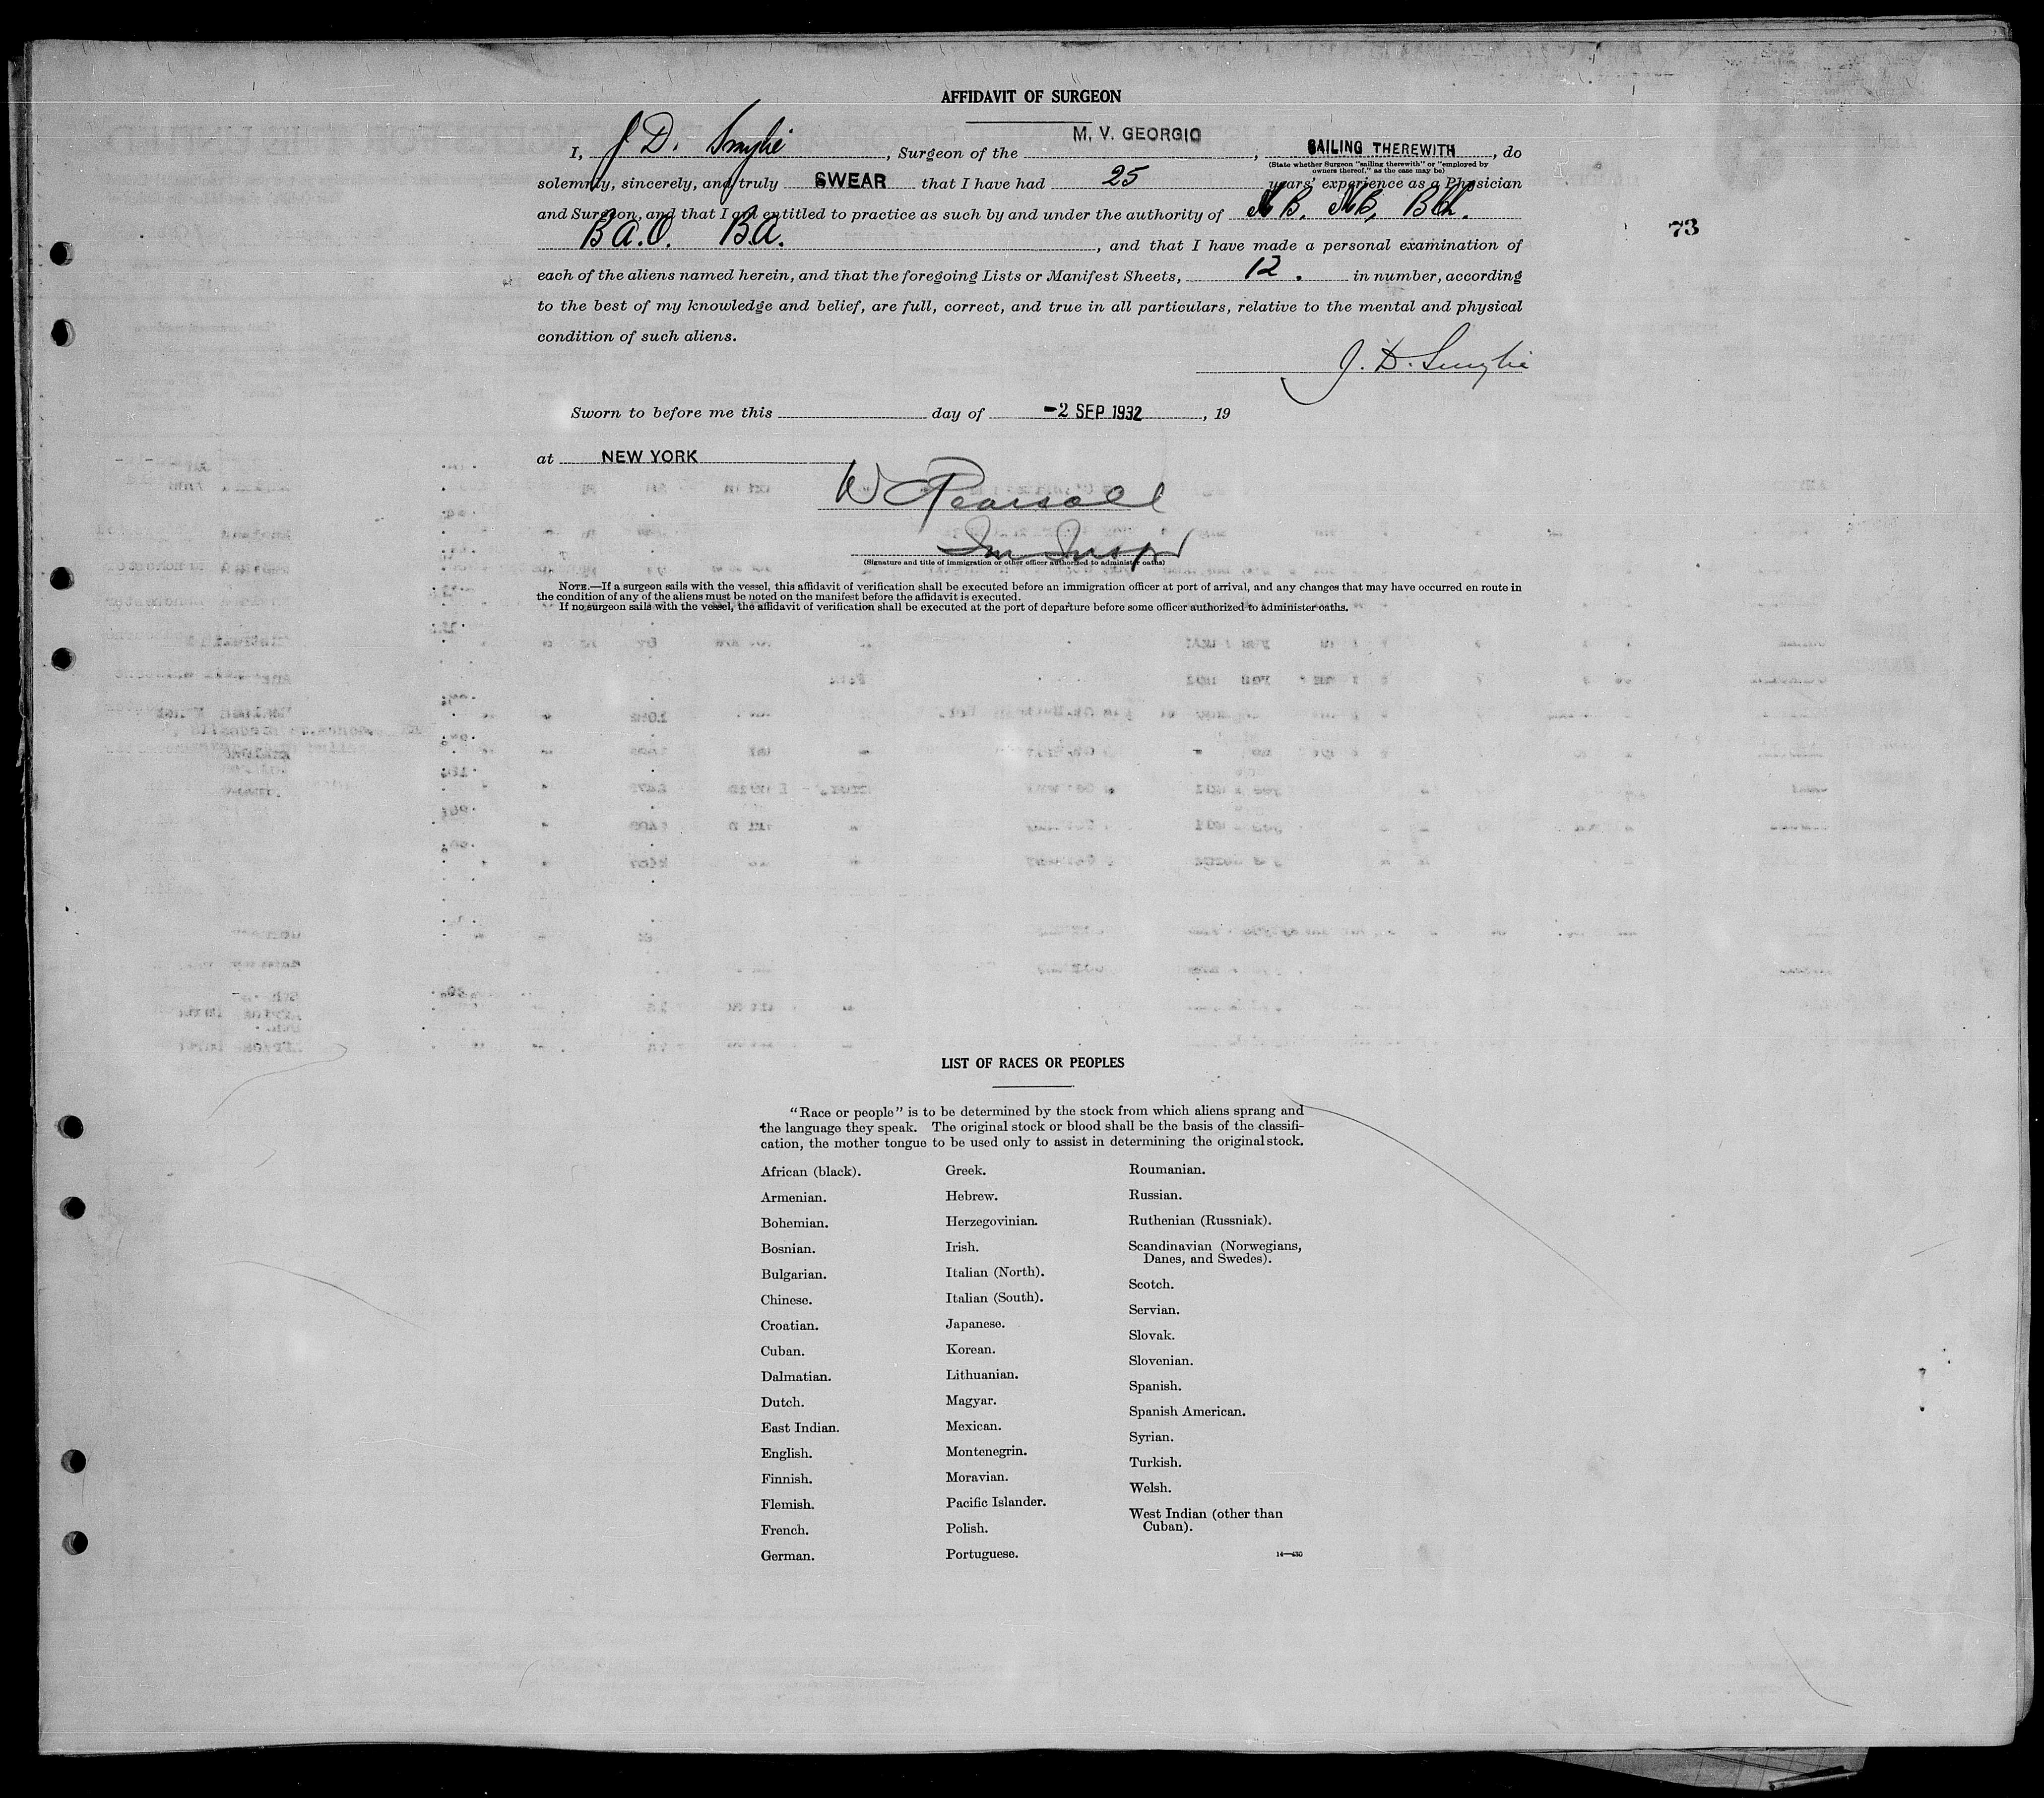 AFFIDAVIT OF SURGEON
I, J D. Smylie, Surgeon of the M. V. GEORGIC, SAILING THEREWITH, do
(State whether Surgeon "sailing therewith" or "employed by
owners thereof," as the case may be)
solemnly, sincerely, and truly SWEAR that I have had 25 years' experience as a Physician
and Surgeon, and that I am entitled to practice as such by and under the authority of M B. B Ch.
73
B A.O. B A., and that I have made a personal examination of
each of the aliens named herein, and that the foregoing Lists or Manifest Sheets, 12. in number, according
to the best of my knowledge and belief, are full, correct, and true in all particulars, relative to the mental and physical
condition of such aliens.
J. D. Smylie
Sworn to before me this day of -2 SEP 1932, 19
at NEW YORK
W Pearsall
Im Inspr
(Signature and title of immigration or other officer authorized to administer oaths)
NOTE.—If a surgeon sails with the vessel, this affidavit of verification shall be executed before an immigration officer at port of arrival, and any changes that may have occurred en route in
the condition of any of the aliens must be noted on the manifest before the affidavit is executed.
If no surgeon sails with the vessel, the affidavit of verification shall be executed at the port of departure before some officer authorized to administer oaths.
LIST OF RACES OR PEOPLES
"Race or people" is to be determined by the stock from which aliens sprang and
the language they speak. The original stock or blood shall be the basis of the classifi-
cation, the mother tongue to be used only to assist in determining the original stock.
African (black).
Armenian.
Bohemian.
Bosnian.
Bulgarian.
Chinese.
Croatian.
Cuban.
Dalmatian.
Dutch.
East Indian.
English.
Finnish.
Flemish.
French.
German.
Greek.
Hebrew.
Herzegovinian.
Irish.
Italian (North).
Italian (South).
Japanese.
Korean.
Lithuanian.
Magyar.
Mexican.
Montenegrin.
Moravian.
Pacific Islander.
Polish.
Portuguese.
Roumanian.
Russian.
Ruthenian (Russniak).
Scandinavian (Norwegians,
Danes, and Swedes).
Scotch.
Servian.
Slovak.
Slovenian.
Spanish.
Spanish American.
Syrian.
Turkish.
Welsh.
West Indian (other than
Cuban).
14—430